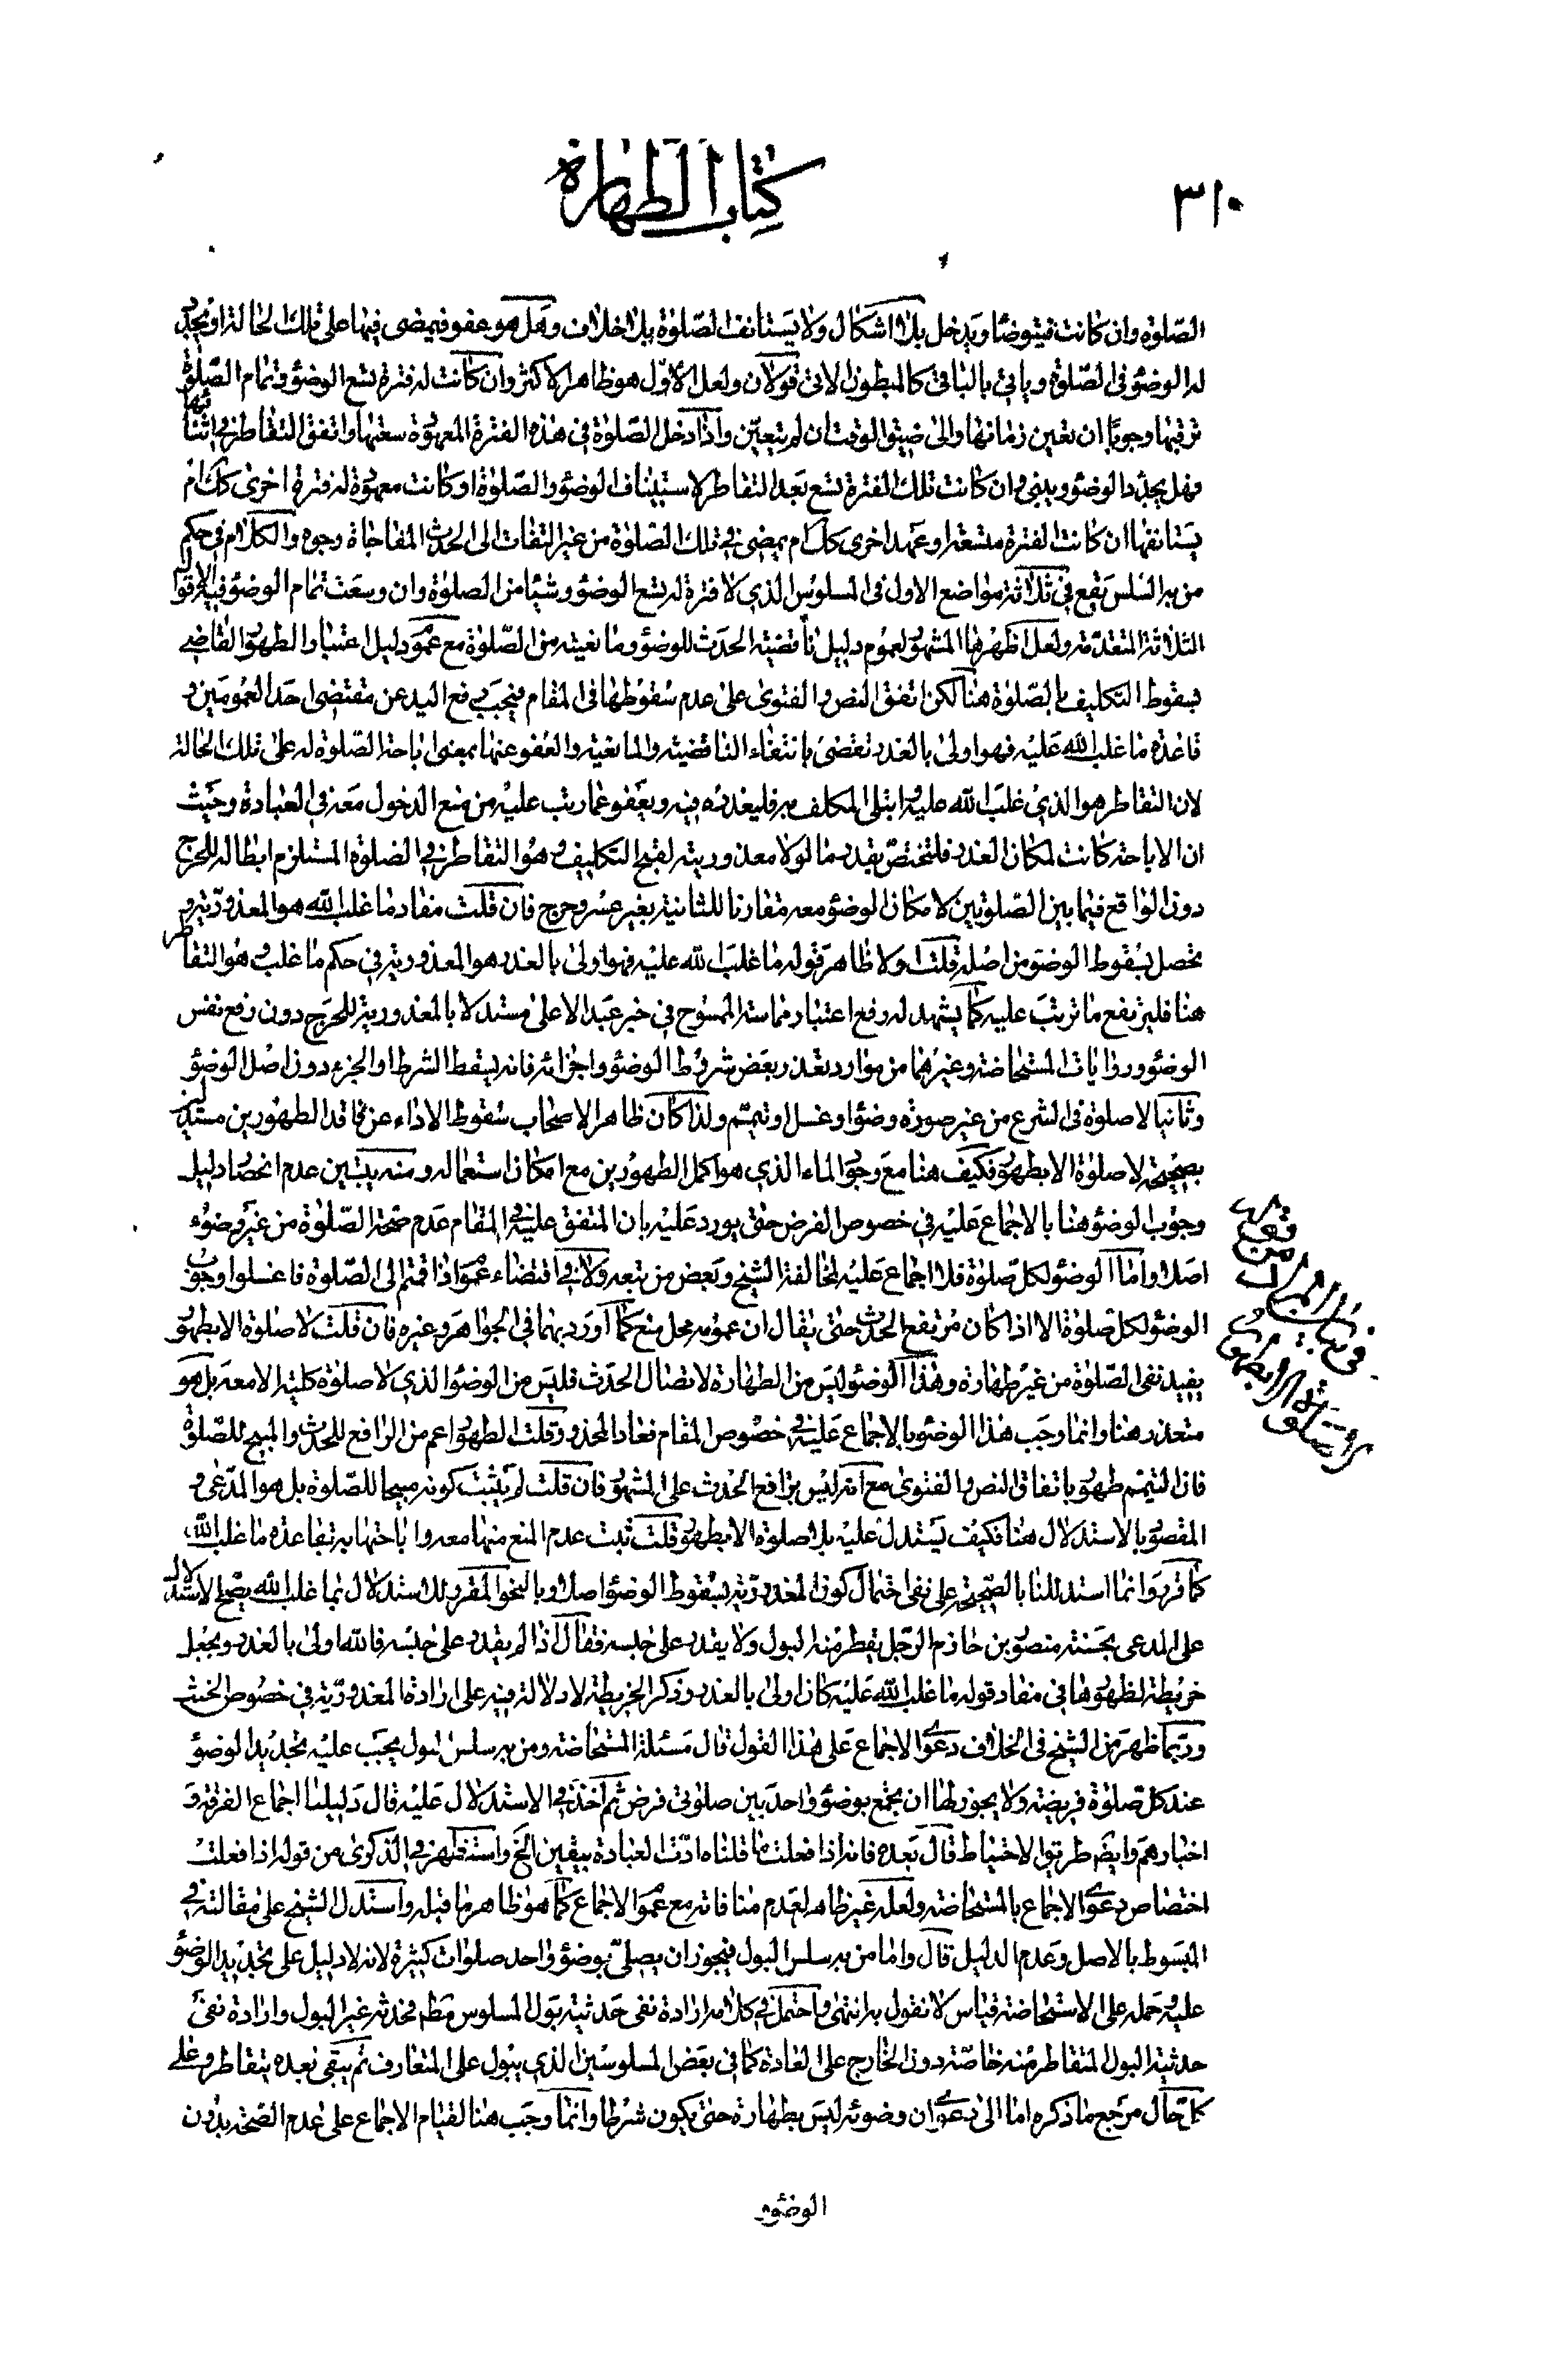 ٣١٠
كتاب الطهارة
الصّلوة وان كانت فيتوضأ ويدخل بلا اشكال ولا يستانف الصّلوة بلا خلاف وهل هو عفو فيمضى فيها على تلك الحالة او يجدّد
له الوضوء فى الصّلوة وياتي بالباقي كالمبطون الاتي قولان ولعل الاوّل هو ظاهر الاكثر وان كانت له فترة تسع الوضوء وتمام الصّلوة
ترقبها وجوبا ان تعين زمانها والى ضيق الوقت ان لم يتعيّن واذا دخل الصّلوة في هذه الفترة المعهودة سعتها واتفق التقاطر في اثنائها
فهل يجدّد الوضوء ويبنى وان كانت تلك الفترة تسع بعد التقاطر لاستيناف الوضوء والصّلوة او كانت معهودة له فترة اخرى كك ام
يستانفها ان كانت الفترة متسعة او عهد اخرى كك ام يمضى في تلك الصّلوة من غير التفات الى الحدث المفاجاة وجوه والكلام في حكم
من به السلس يقع في ثلاثة مواضع الاول فى المسلوس الذي لا فترة له تسع الوضوء وشيئا من الصلوة وان وسعت تمام الوضوء فيه الاقوال
الثلاثة المتقدّمة ولعل اظهرها المشهور لعموم دليل ناقضية الحدث للوضوء ومانعيته من الصّلوة مع عموم دليل اعتبار الطهور القاضي
بسقوط التكليف بالصّلوة هنا لكن اتفق النص والفتوى على عدم سقوطها فى المقام فيجب رفع اليد عن مقتضى احد العمومين و
قاعدة ما غلب الله عليه فهو اولى بالعذر تقضى بانتفاء الناقضية والمانعية والعفو عنها بمعنى اباحة الصّلوة له على تلك الحالة
لان التقاطر هو الذي غلب الله عليه و ابتلى المكلف به فليعذره فيه ويعفو عما رتب عليه من منع الدخول معه في العبادة وحيث
ان الاباحة كانت لمكان العذر فلتختص بقدر ما لولا معذوريته لقبح التكليف وهو التقاطر في الصلوة المستلزم ابطاله للحرج
دون الواقع فيما بين الصّلوتين لامكان الوضوء معه مقارنا للثانية بغير عسر وحرج فان قلت مفاد ما غلب الله هو المعذوريّة و
تحصل بسقوط الوضوء من اصله قلت اولا ظاهر قوله ما غلب الله عليه فهو اولى بالعذر هو المعذورية في حكم ما غلب وهو التقاطر
هنا فليرتفع ما ترتب عليه كما يشهد له رفع اعتبار مماسة الممسوح في خبر عبد الاعلى مستدلا بالمعذورية للحرج دون رفع نفس
الوضوء وروايات المستحاضة وغيرهما من موارد تعذر بعض شروط الوضوء واجزائه فانه يسقط الشرط او الجزء دون اصل الوضوء
وثانيا لا صلوة فى الشرع من غير صورة وضوء او غسل او تيمّم ولذا كان ظاهر الاصحاب سقوط الاداء عن فاقد الطهورين مستدلين
بصحيحة لا صلوة الا بطهور فكيف هنا مع وجود الماء الذي هو اكمل الطهورين مع امكان استعماله ومنه يتبين عدم انحصار دليل
وجوب الوضوء هنا بالاجماع عليه في خصوص الفرض حتى يورد عليه بان المتفق عليه في المقام عدم صحة الصّلوة من غير وضوء
اصلا واما الوضوء لكل صّلوة فلا اجماع عليه لمخالفة الشيخ وبعض من تبعه ولا في اقتضاء عموم اذا قمتم الى الصّلوة فاغسلوا وجوب
الوضوء لكل صلوة الا اذا كان مرتفع الحدث حتى يقال ان عمومه محل منع كما اورد بهما في الجواهر وغيره فان قلت لا صلوة الا بطهور
يفيد نفى الصّلوة من غير طهارة وهذا الوضوء ليس من الطهارة لاتصال الحدث فليس من الوضوء الذي لا صلوة كلية الا معه بل هو
متعذر هنا وانما وجب هذا الوضوء بالاجماع عليه في خصوص المقام فعاد المحذور قلت الطهور اعم من الرافع للحدث والمبيح للصّلوة
فان التيمّم طهور باتفاق النص والفتوى مع انه ليس برافع الحدث على المشهور فان قلت لم يثبت كونه مبيحا للصّلوة بل هو المدّعى و
المقصود بالاستدلال هنا فكيف يستدل عليه بلا صلوة الا بطهور قلت ثبت عدم المنع منها معه واباحتها به بقاعدة ما غلب الله
كما قرر وانما استدللنا بالصّحيحة على نفى احتمال كون المعذوريّة بسقوط الوضوء اصلا وبالنحو المقرر للاستدلال بما غلب الله يصّح الاستدلال
على المدعى بحسنة منصور بن حازم الرّجل يقطر منه البول ولا يقدر على حبسه فقال اذا لم يقدر على حبسه فالله اولى بالعذر ويجعل
خريطة لظهورها في مفاد قوله ما غلب الله عليه كان اولى بالعذر وذكر الخريطة لا دلالة فيه على ارادة المعذوريّة في خصوص الخبث
وربّما ظهر من الشيخ فى الخلاف دعوى الاجماع على هذا القول قال مسئلة المستحاضة ومن به سلس البول يجب عليه تجديد الوضوء
عند كل صّلوة فريضة ولا يجوز لهما ان يجمع بوضوء واحد بين صلوتى فرض ثم اخذ في الاستدلال عليه قال دليلنا اجماع الفرقة و
اخبارهم وايضا طريق الاحتياط قال بعده فانه اذا فعلت ما قلناه ادّت العبادة بيقين الخ واستظهر في الذكرى من قوله اذا فعلت
اختصاص دعوى الاجماع بالمستحاضة ولعله غير ظاهر لعدم منافاته مع عموم الاجماع كما هو ظاهر ما قبله واستدل الشيخ على مقالته في
المبسوط بالاصل وعدم الدليل قال واما من به سلس البول فيجوز ان يصلّى بوضوء واحد صلوات كثيرة لانه لا دليل على تجديد الوضوء
عليه وحمله على الاستحاضة قياس لا نقول به انتهى واحتمل في كلامه ارادة نفى حدثية بول المسلوس مط فحدثه غير البول وارادة نفى
حدثية البول المتقاطر منه خاصّة دون الخارج على العادة كما في بعض المسلوسين الذي يبول على المتعارف ثم يبقى بعده يتقاطر وعلى
كل حال مرجع ما ذكره اما الى دعوى ان وضوئه ليس بطهارة حتى يكون شرطا وانما وجب هنا لقيام الاجماع على عدم الصّحة بدون
الوضوء